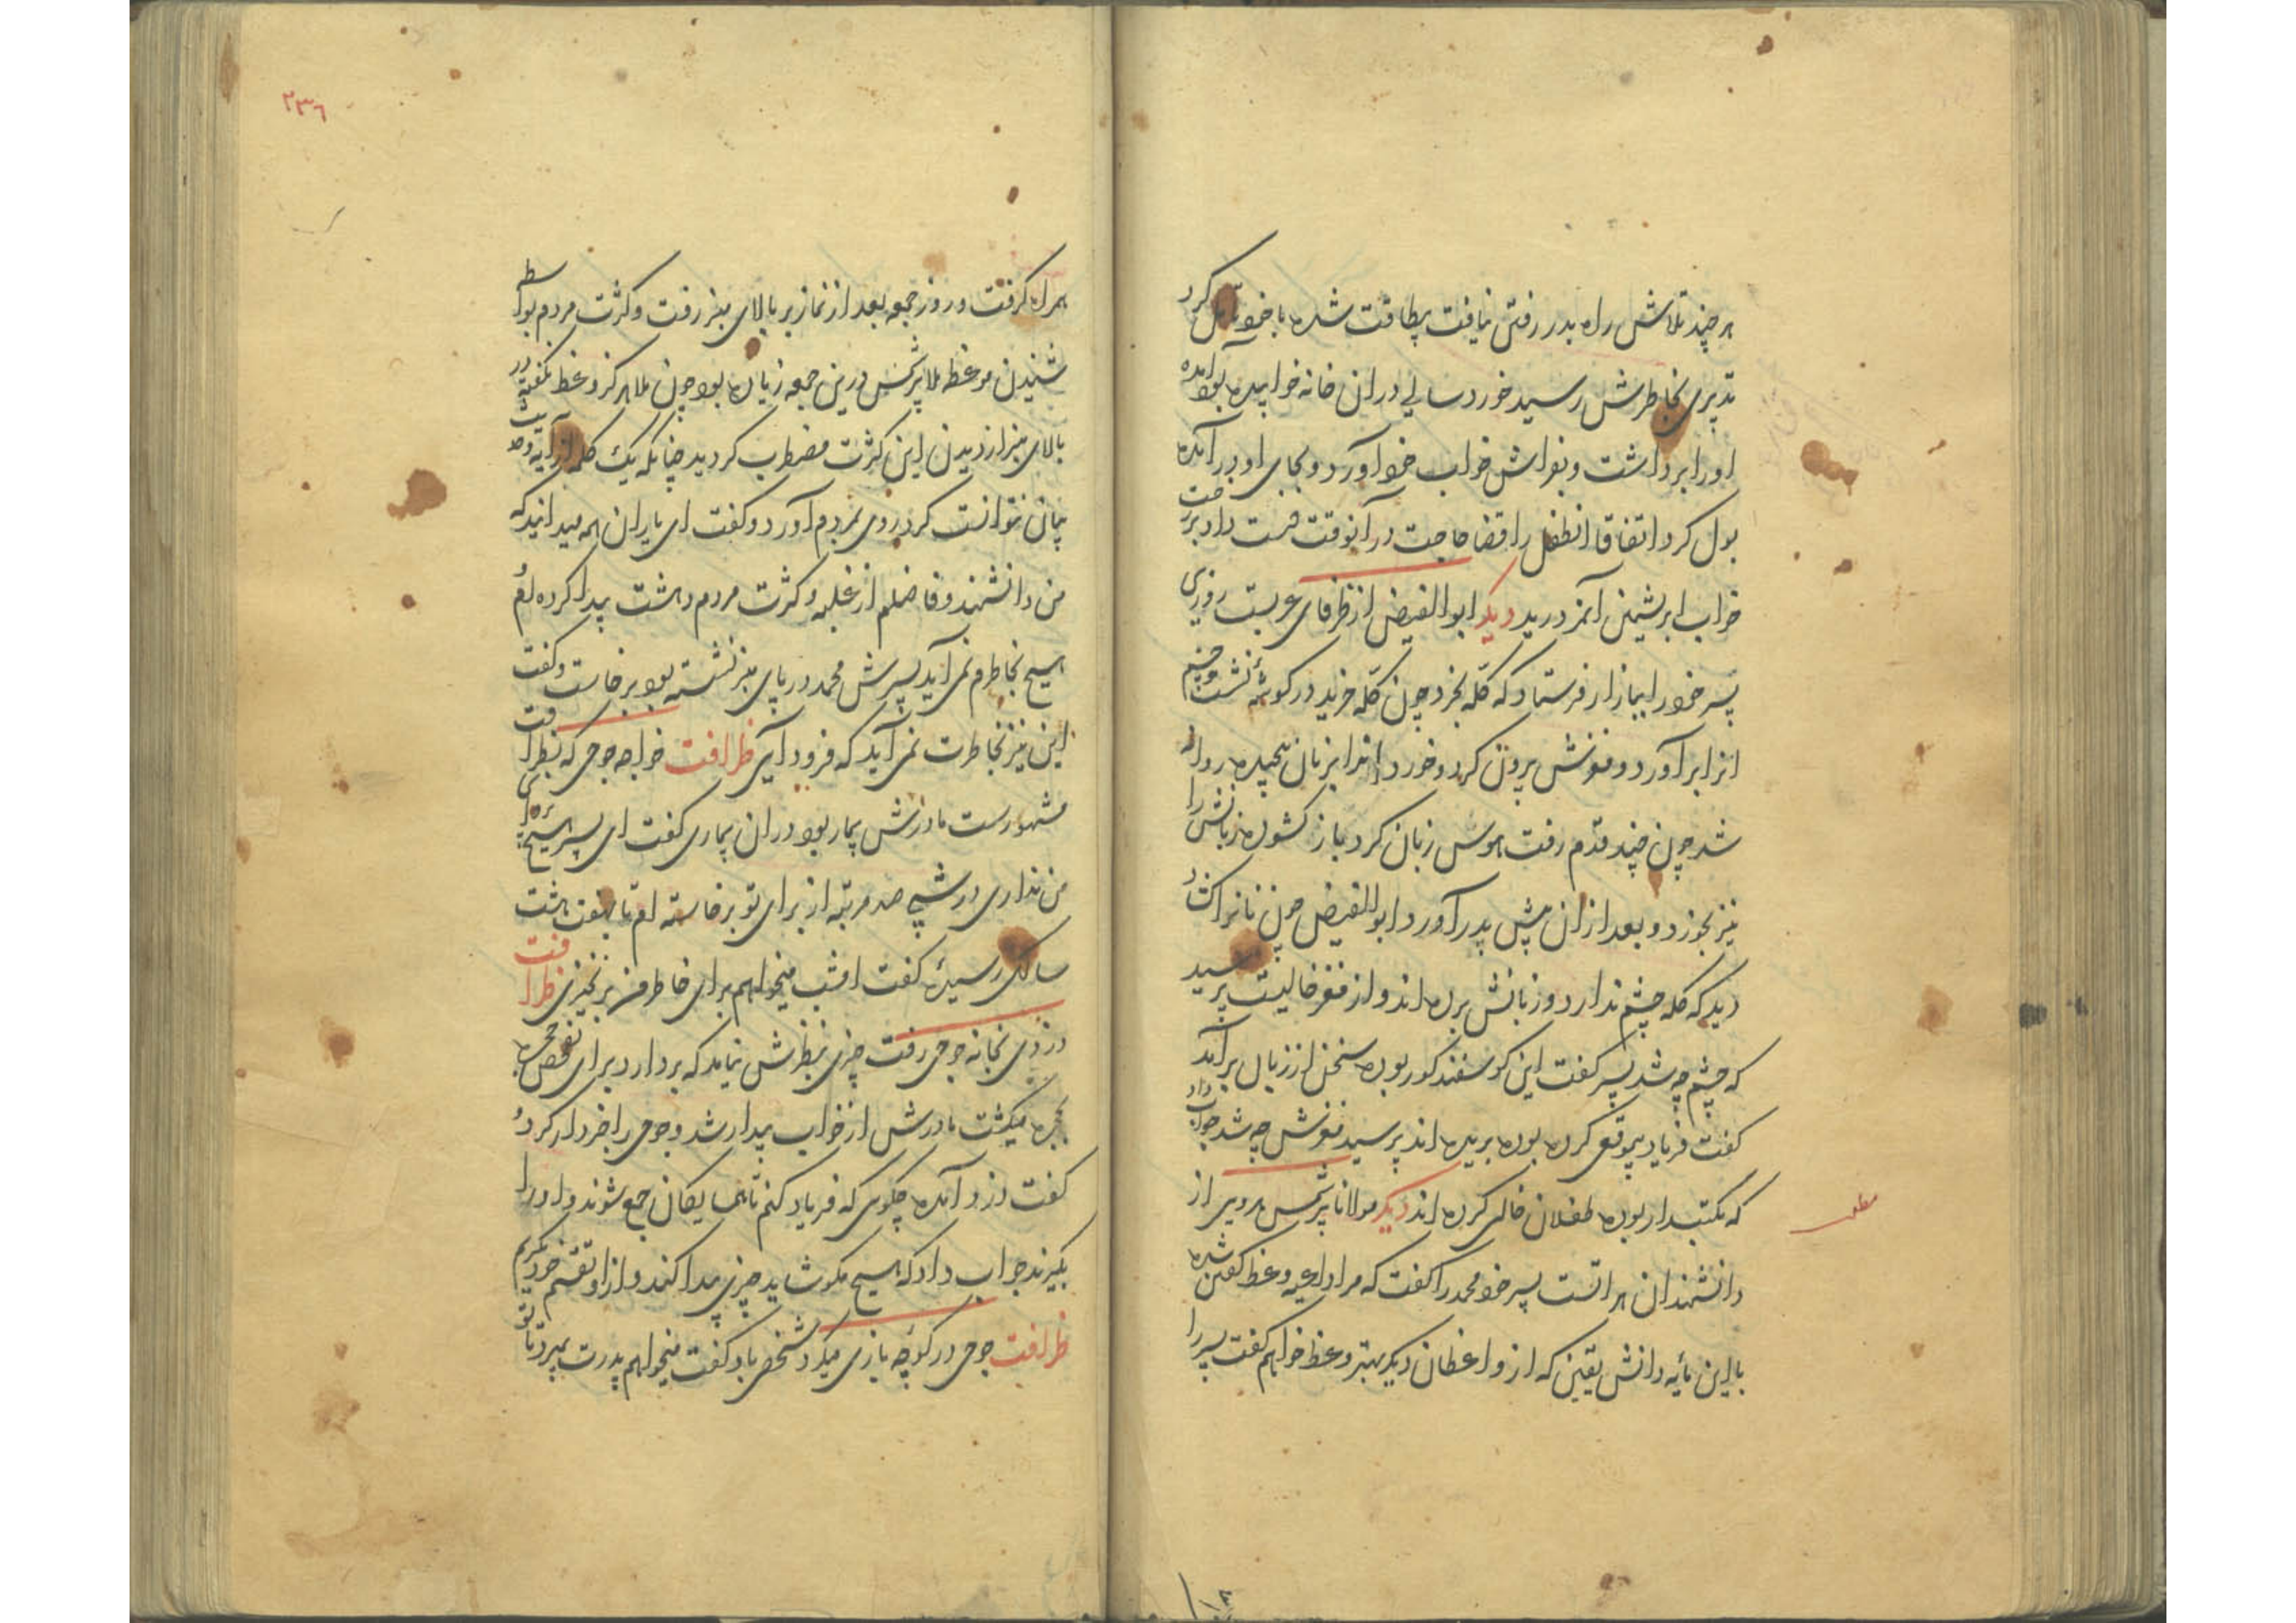 هر چند تلاش راه بدر رفتن نیافت بیطاقت شده با خود تامل کرد
تدبیری بخاطرش رسید خورد سالی در ان خانه خوابیده بود آمده
او را برداشت و بفراش خواب خود آورد و بجای او در آمده
بول کرد اتفاقا انطفل را قضا حاجت در آنوقت دست داد بر رخت
خواب ابریشمین آنمرد رید دیگر ابوالفیض از ظرفای عربست روزی
پسر خود را ببازار فرستاد که کله بخرد چون کله خرید در گوشهٔ نشست و چشم
انرا برآورد و مغزش برون کرد و خورد انرا بر نان پیچیده روانه
شد چون چند قدم رفت هوس زبان کرد باز گشوده زبانش را
نیز بخورد و بعد از ان پیش پدر آورد ابوالفیض چون نانرا گشاد
دید که کله چشم ندارد و زبانش بریده اند و از مغز خالیست پرسید
که چشم چه شد پسر گفت این گوسفند کور بوده سخن از زبان برآمد
گفت فریاد بیموقع کرده بوده بریده اند پرسید مغزش چه شد جواب داد
که مکتبدار بوده طفلان خالی کرده اند دیگر مولانا شمس هروی از
دانشمندان هراتست پسر خود محمد را گفت که مرا داعیه وعظ گفتن شده
با این مایه دانش یقین که از واعظان دیگر بهتر وعظ خواهم گفت پسر را
مطلب
۲۳۶
همراه گرفت و روز جمعه بعد از نماز بر بالای منبر رفت و کثرت مردم بواسطه
شنیدن موعظه ملا شمس درین جمعه زیاده بود چون ملا هرگز وعظ نگفته بود
بالای منبر از دیدن این کثرت مضطرب گردید چنانکه یک کلمه از آیه و حدیث
بیان نتوانست کرد روی بمردم آورد و گفت ای یاران همه میدانید که
من دانشمند و فاضلم از غلبه و کثرت مردم دهشت پیدا کرده ام و
هیچ بخاطرم نمی آید پسرش محمد در پای منبر نشسته بود برخاست و گفت
این نیز بخاطرت نمی آید که فرود آیی ظرافت خواجه جوحی که بظرافت
مشهورست مادرش بیمار بود در ان بیماری گفت ای پسر هیچ
من نداری در شبی صد مرتبه از برای تو برخاسته ام تا بهفت هشت
سالگی رسیدهٔ گفت امشب میخواهم برای خاطر من برنخیزی ظرافت
دزدی بخانه جوحی رفت چیزی بنظرش نیامد که بردارد برای تفحص حجره
بحجره میگشت مادرش از خواب بیدار شد و جوحی را خبردار کرد و
گفت دزد آمده چگویی که فریاد کنم تا همسایگان جمع شوند و او را
بگیرند جواب داد که هیچ مگو شاید چیزی پیدا کند و از او تقسیم خود بگیریم
ظرافت جوحی در کوچه بازی میکرد شخصی باو گفت میخواهم پدرت بمیرد تا تو